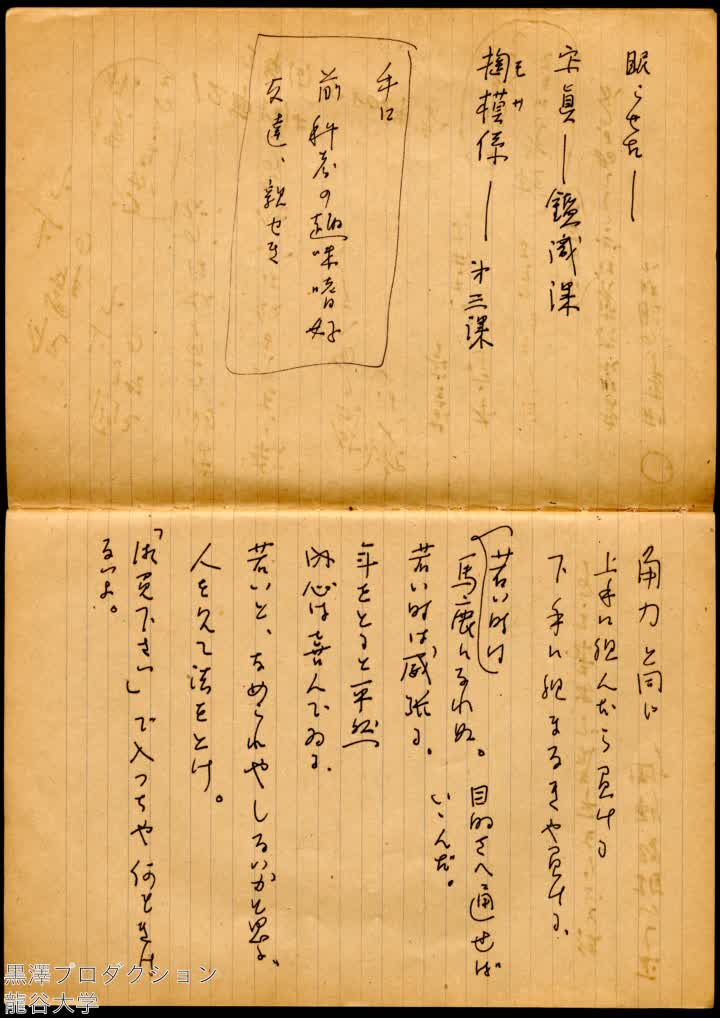 眠らせた―
写真―鑑識課
掏摸係―㐧三課
モサ
手口
前科者の趣味嗜好
友達、親せき
角力と同じ
上手に組んだら負ける
下手に組まなきや負ける、
若い時は
馬鹿になれぬ。目的さへ通せば
いゝんだ。
若い時は威張る。
年をとると平然
内心は喜んでゐる、
若いと、なめられやしないかと思ふ、
人を見て法をとけ。
「御免下さい」で入つちや何ときけ
ないよ。
黒澤プロダクション
龍谷大学